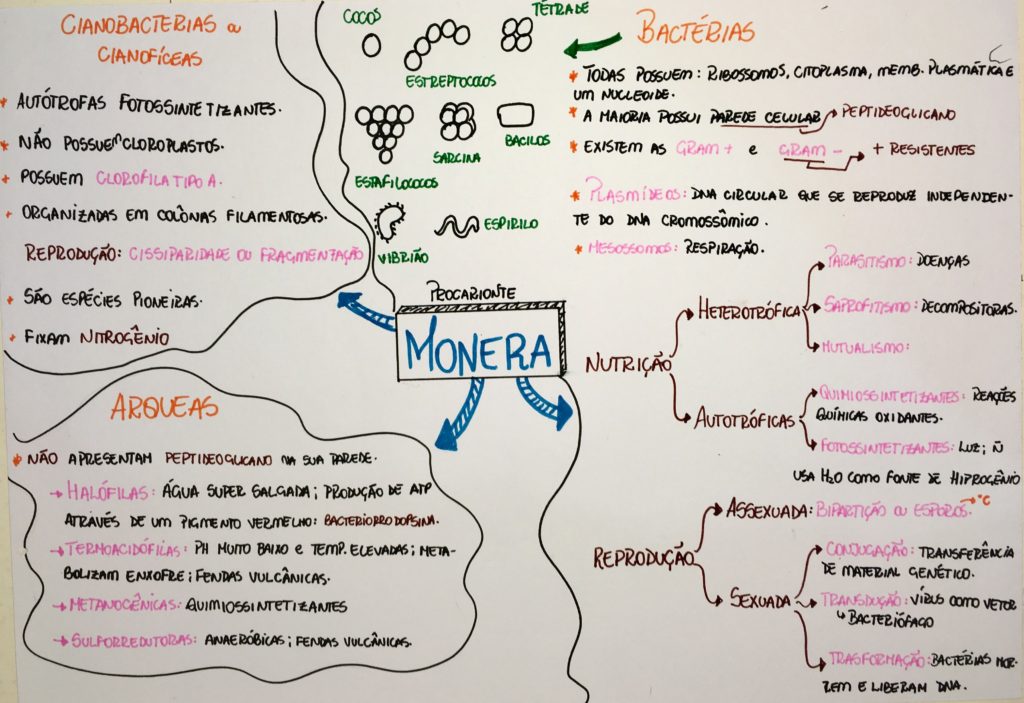 CIANOBACTERIAS ou
CIANOFÍCEAS
* AUTÓTROFAS FOTOSSINTETIZANTES.
* NÃO POSSUEM CLOROPLASTOS.
* POSSUEM CLOROFILA TIPO A.
* ORGANIZADAS EM COLÔNAS FILAMENTOSAS.
REPRODUÇÃO: CISSIPARIDADE OU FRAGMENTAÇÃO
* SÃO ESPÉCIES PIONEIRAS.
* FIXAM NITROGÊNIO
COCOS
TÉTRADE
ESTREPTOCOCOS
SARCINA
BACILOS
ESTAFILOCOCOS
VIBRIÃO
ESPIRILO
PROCARIONTE
MONERA
BACTÉRIAS
* TODAS POSSUEM: RIBOSSOMOS, CITOPLASMA, MEMB. PLASMÁTICA E
UM NUCLEOIDE.
* A MAIORIA POSSUI PAREDE CELULAR → PEPTIDEOGLICANO
* EXISTEM AS GRAM + e GRAM - → + RESISTENTES
* PLASMÍDEOS: DNA CIRCULAR QUE SE REPRODUZ INDEPENDEN-
TE DO DNA CROMOSSÔMICO.
* MESOSSOMOS: RESPIRAÇÃO.
NUTRIÇÃO
HETEROTRÓFICA
PARASITISMO: DOENÇAS
SAPROFITISMO: DECOMPOSITORAS.
MUTUALISMO:
AUTOTRÓFICAS
QUIMIOSSINTETIZANTES: REAÇÕES
QUÍMICAS OXIDANTES.
FOTOSSINTETIZANTES: LUZ; Ñ
USA H2O COMO FONTE DE HIDROGÊNIO
REPRODUÇÃO
ASSEXUADA: BIPARTIÇÃO ou ESPOROS. → °C
SEXUADA
CONJUGAÇÃO: TRANSFERÊNCIA
DE MATERIAL GENÉTICO.
TRANSDUÇÃO: VÍRUS COMO VETOR
↳ BACTERIÓFAGO
TRASFORMAÇÃO: BACTÉRIAS MOR-
REM E LIBERAM DNA.
ARQUEAS
* NÃO APRESENTAM PEPTIDEOGLICANO NA SUA PAREDE.
→ HALÓFILAS: ÁGUA SUPER SALGADA; PRODUÇÃO DE ATP
ATRAVÉS DE UM PIGMENTO VERMELHO: BACTERIORRODOPSINA.
→ TERMOACIDÓFILAS: PH MUITO BAIXO E TEMP. ELEVADAS; META-
BOLIZAM ENXOFRE; FENDAS VULCÂNICAS.
→ METANOGÊNICAS: QUIMIOSSINTETIZANTES
→ SULFORREDUTORAS: ANAERÓBICAS; FENDAS VULCÂNICAS.